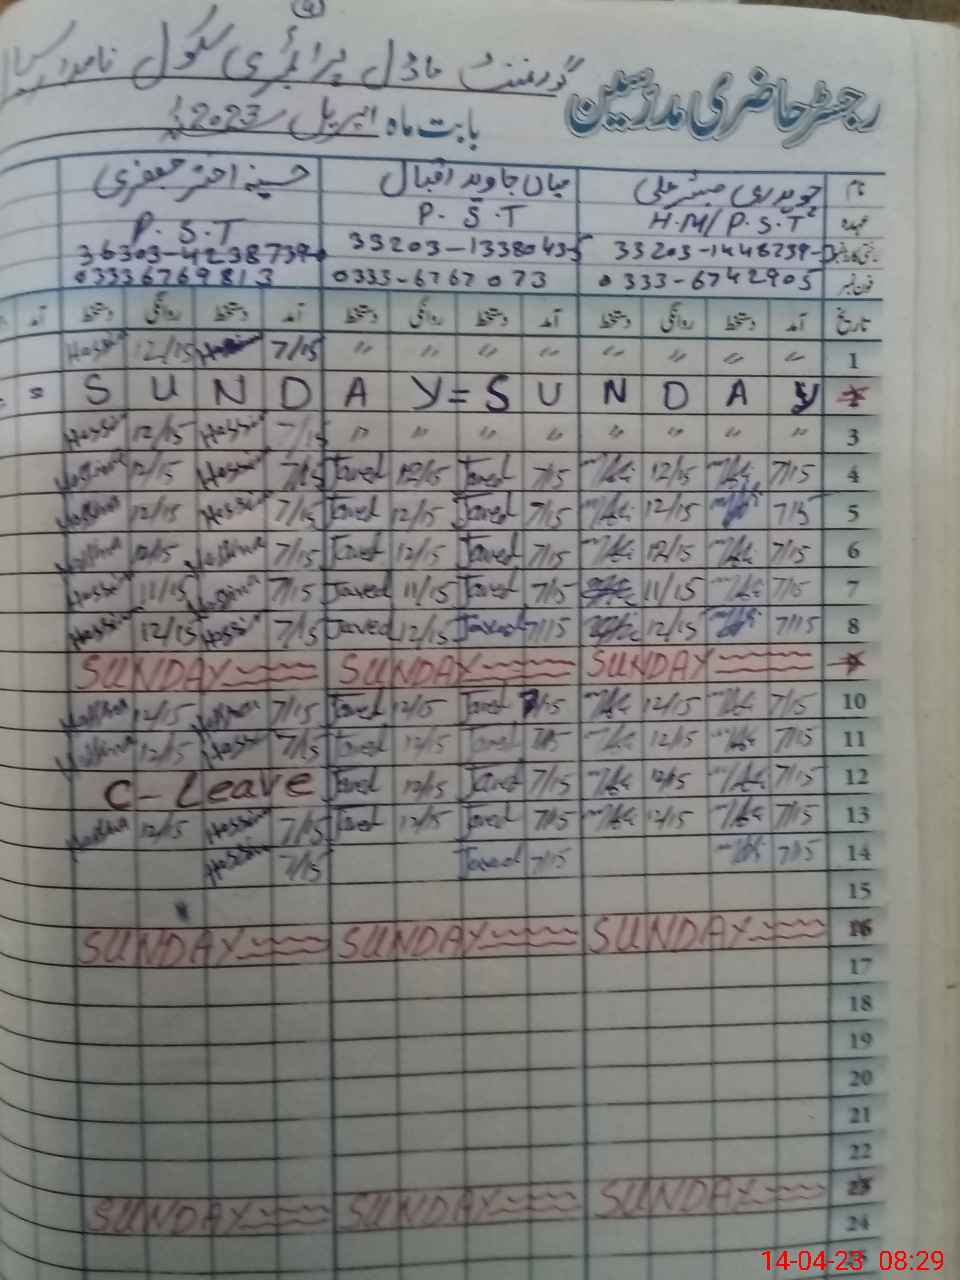 گورنمنٹ ماڈل پرائمری سکول
رجسٹر حاضری مدرسین
بابت ماہ اپریل 2023ء
نام چوہدری مبشر علی میاں جاوید اقبال حسینہ اختر جعفری
عہدہ H.M/P.S.T P.S.T P.S.T
33203-1448739- 33203-1338043-5 36303-4238739-
فون نمبر 0333-6742905 0333-6767073 03336769813
تاریخ آمد دستخط روانگی دستخط آمد دستخط روانگی دستخط آمد دستخط روانگی دستخط آمد
1 〃 〃 〃 〃 〃 〃 〃 〃 7/15 12/15 Hassin
= S U N D A Y = S U N D A Y
3 〃 〃 〃 〃 〃 〃 〃 〃 7/15 Hassin 12/15 Hassin
4 7/15 12/15 7/15 Javed 12/15 Javed 7/15 Hassin 12/15
5 7/15 12/15 7/15 Javed 12/15 Javed 7/15 Hassin 12/15
6 7/15 12/15 7/15 Javed 12/15 Javed 7/15 12/15
7 7/15 11/15 7/15 Javed 11/15 Javed 7/15 11/15 Hassin
8 7/15 12/15 7/15 Javed 12/15 Javed 7/15 Hassin 12/15 Hassin
SUNDAY SUNDAY SUNDAY
10 7/15 12/15 7/15 Javed 12/15 Javed 7/15 12/15
11 7/15 12/15 7/15 Javed 12/15 Javed 7/15 Hassin 12/15
12 7/15 12/15 7/15 Javed 12/15 Javed C-Leave
13 7/15 12/15 7/15 Javed 12/15 Javed 7/15 Hassin 12/15
14 7/15 7/15 Javed 7/15 Hassin
15
16 SUNDAY SUNDAY SUNDAY
17
18
19
20
21
22
23 SUNDAY SUNDAY SUNDAY
24
14-04-23 08:29